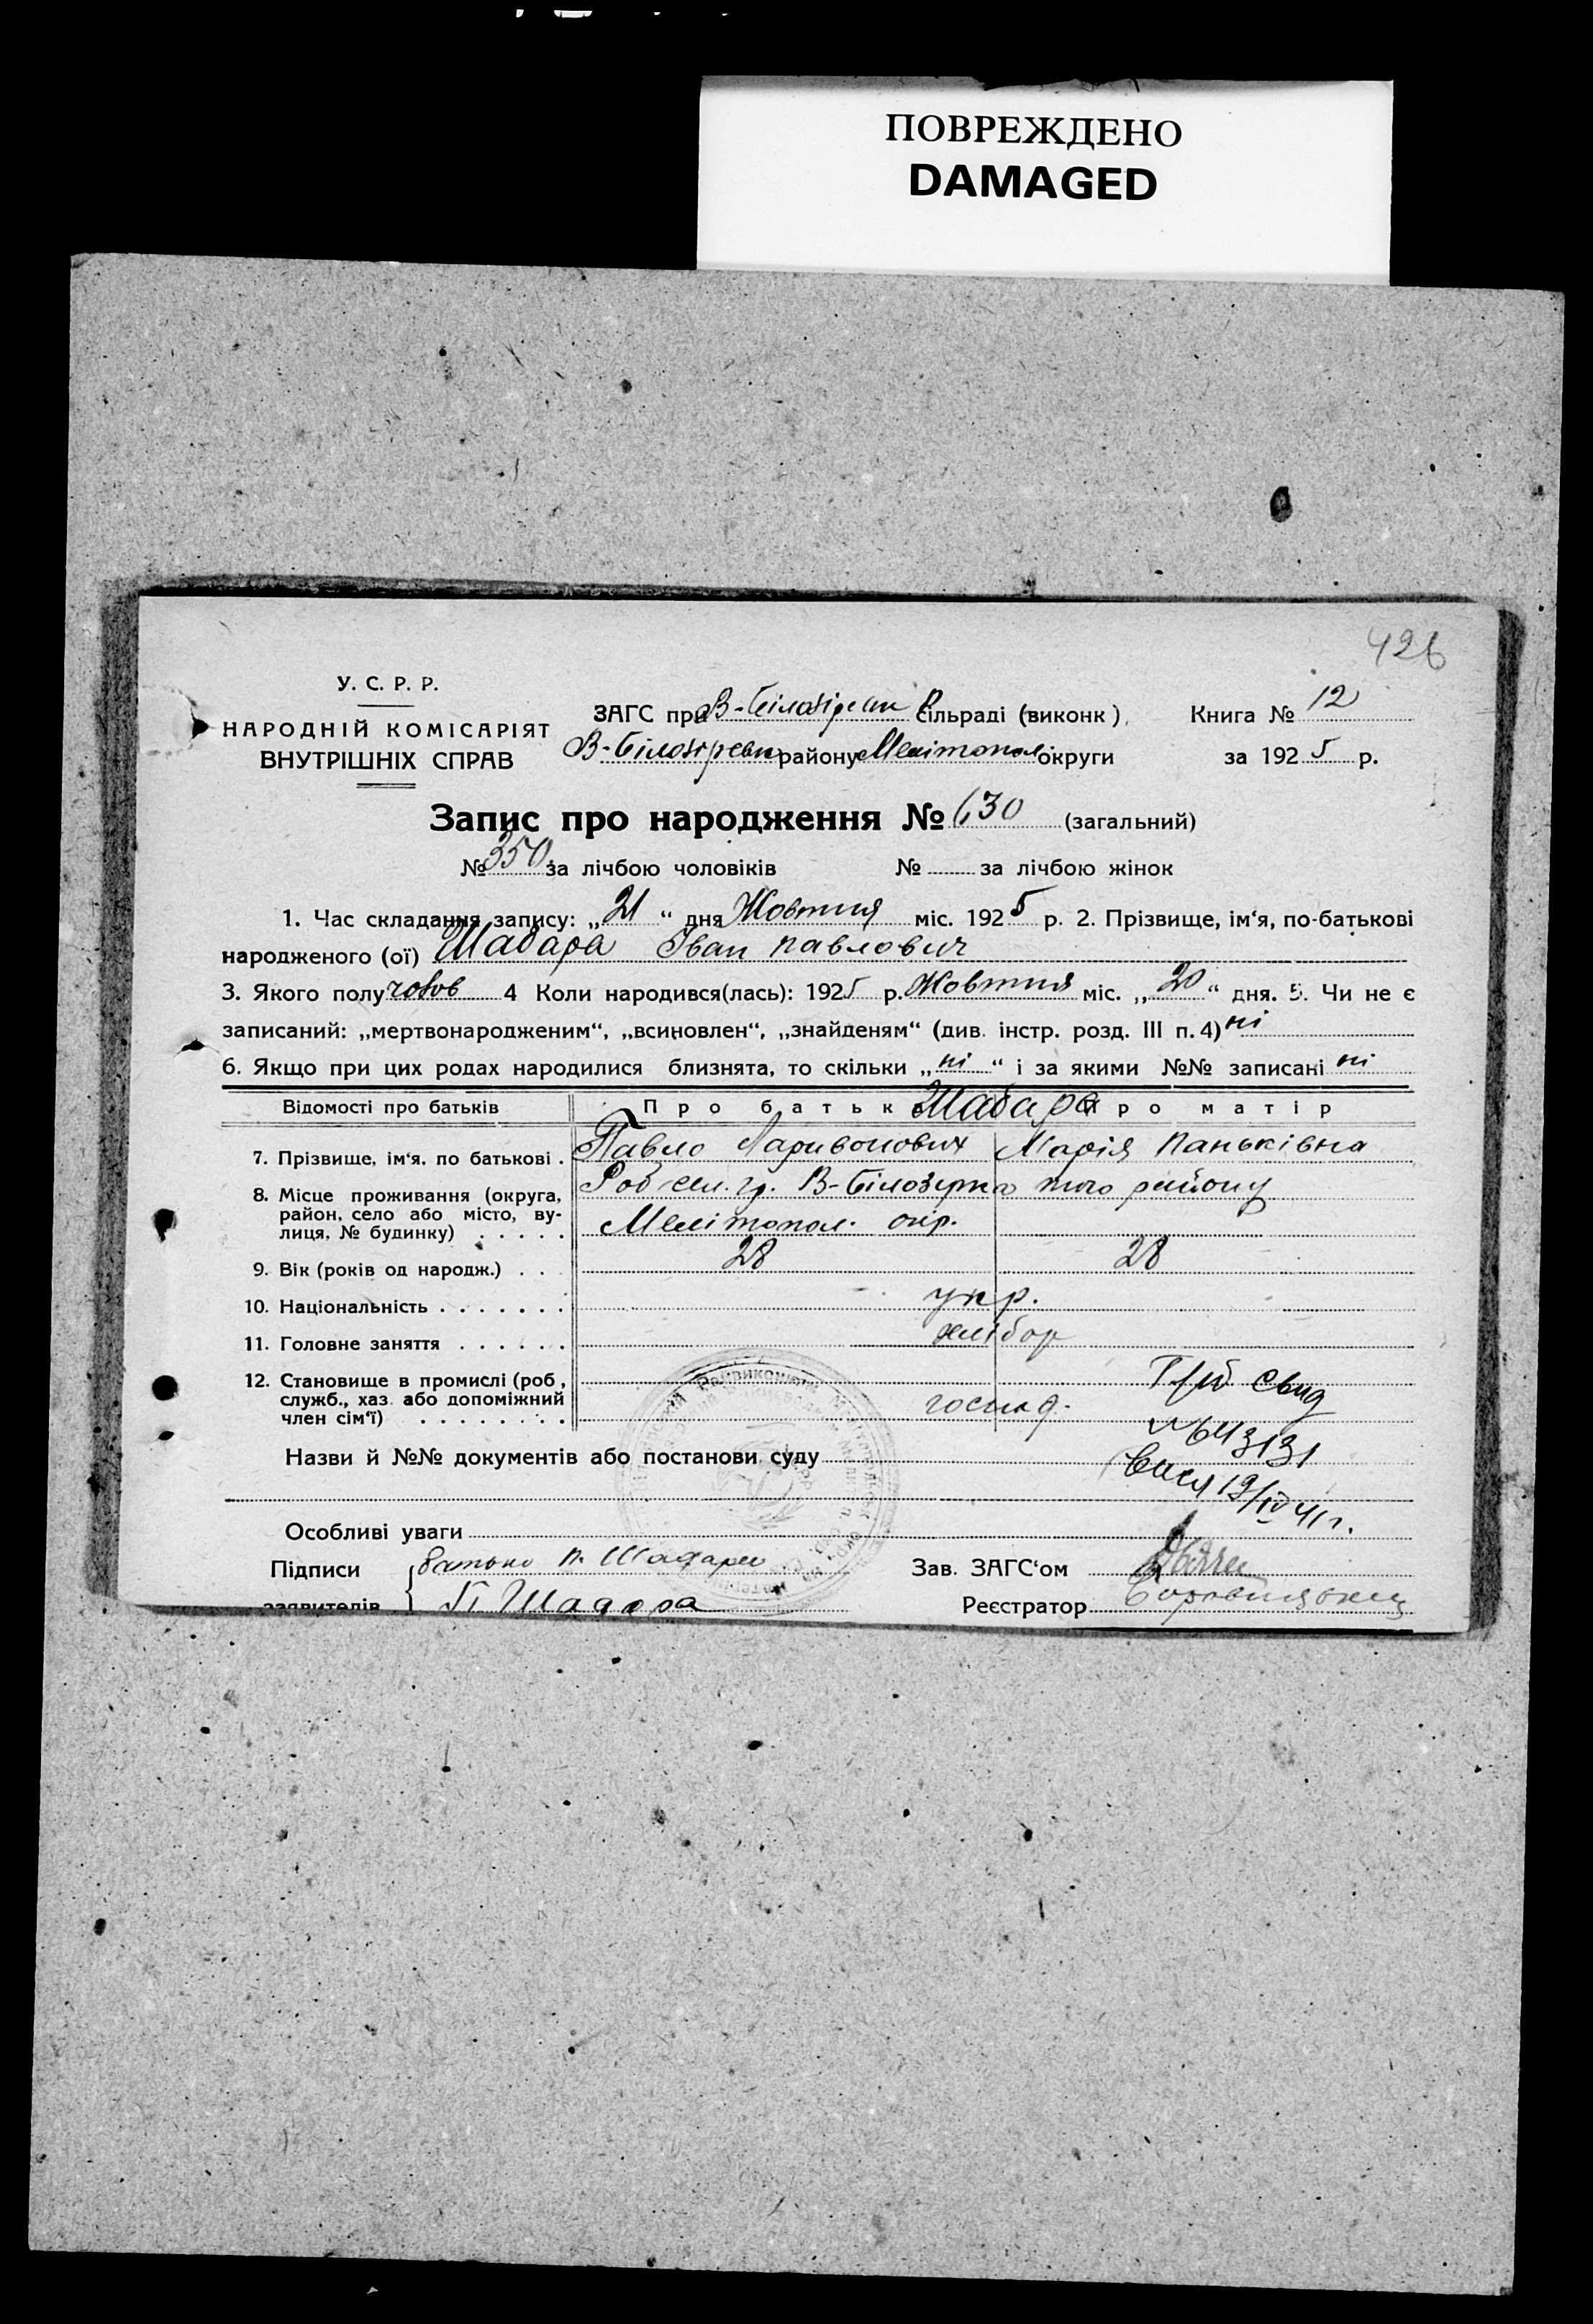 ПОВРЕЖДЕНО
DAMAGED
426
У. С. Р. Р.
НАРОДНІЙ КОМІСАРІЯТ
ВНУТРІШНІХ СПРАВ
ЗАГС при В-Білозірськ сільраді (виконк)
В-Білозірськ району Мелітопол округи
Книга № 12
за 1925 р.
Запис про народження № 630 (загальний)
№ 350 за лічбою чоловіків № за лічбою жінок
1. Час складання запису: „21“ дня Жовтня міс. 1925 р. 2. Прізвище, ім‘я, по-батькові
народженого (ої) Шабара Іван Павлович
3. Якого полу чолов 4 Коли народився(лась): 1925 р. Жовтня міс. „20“ дня. 5. Чи не є
записаний: „мертвонародженим“, „всиновлен“, „знайденям“ (див. інстр. розд. III п. 4) ні
6. Якщо при цих родах народилися близнята, то скільки „ні“ і за якими №№ записані ні
Відомості про батьків Про батьк Шабара Про матір
7. Прізвище, ім‘я, по батькові . Павло Ларивонович Марія Паньківна
8. Місце проживання (округа, район, село або місто, вулиця, № будинку) . . . . . гр. В-Білозірка того району
Мелітопол. окр.
9. Вік (років од народж.) . . . 28 28
10. Національність . . . . . . . укр.
11. Головне заняття . . . . . . хлібор
12. Становище в промислі (роб,
служб., хаз. або допоміжний
член сім‘ї) . . . . . . . . господ.
свид
№ 643131
19/IV 41 г.
Назви й №№ документів або постанови суду
Особливі уваги
Підписи
заявителів
батько П. Шабара
П Шабара
Зав. ЗАГС‘ом
Реєстратор